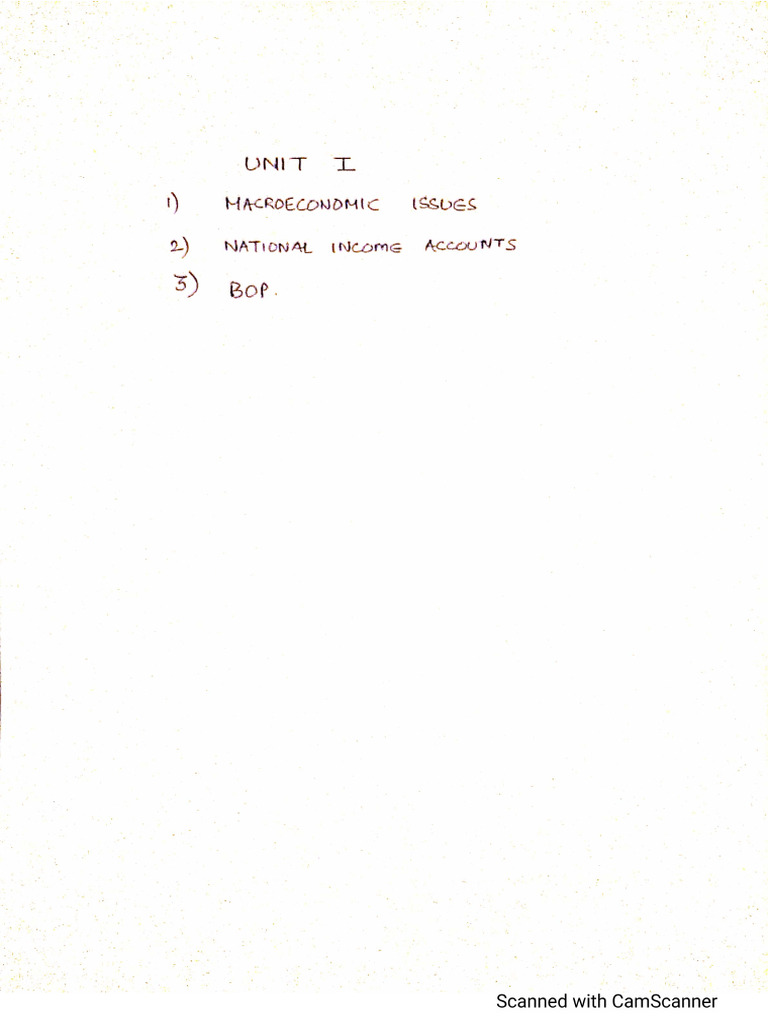 UNIT I
1) MACROECONOMIC ISSUES
2) NATIONAL INCOME ACCOUNTS
3) BOP.
Scanned with CamScanner